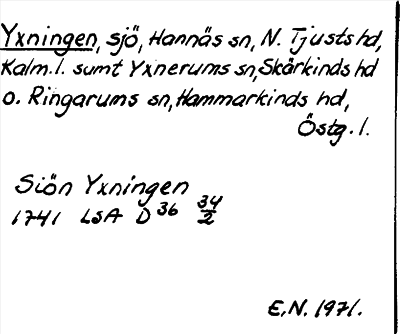 Yxningen, sjö, Hannäs sn, N. Tjusts hd,
Kalm.l. samt Yxnerums sn, Skärkinds hd
o. Ringarums sn, Hammarkinds hd,
Östg. l.
Siön Yxningen
1741 LSA D 36 34/2
E.N. 1971.